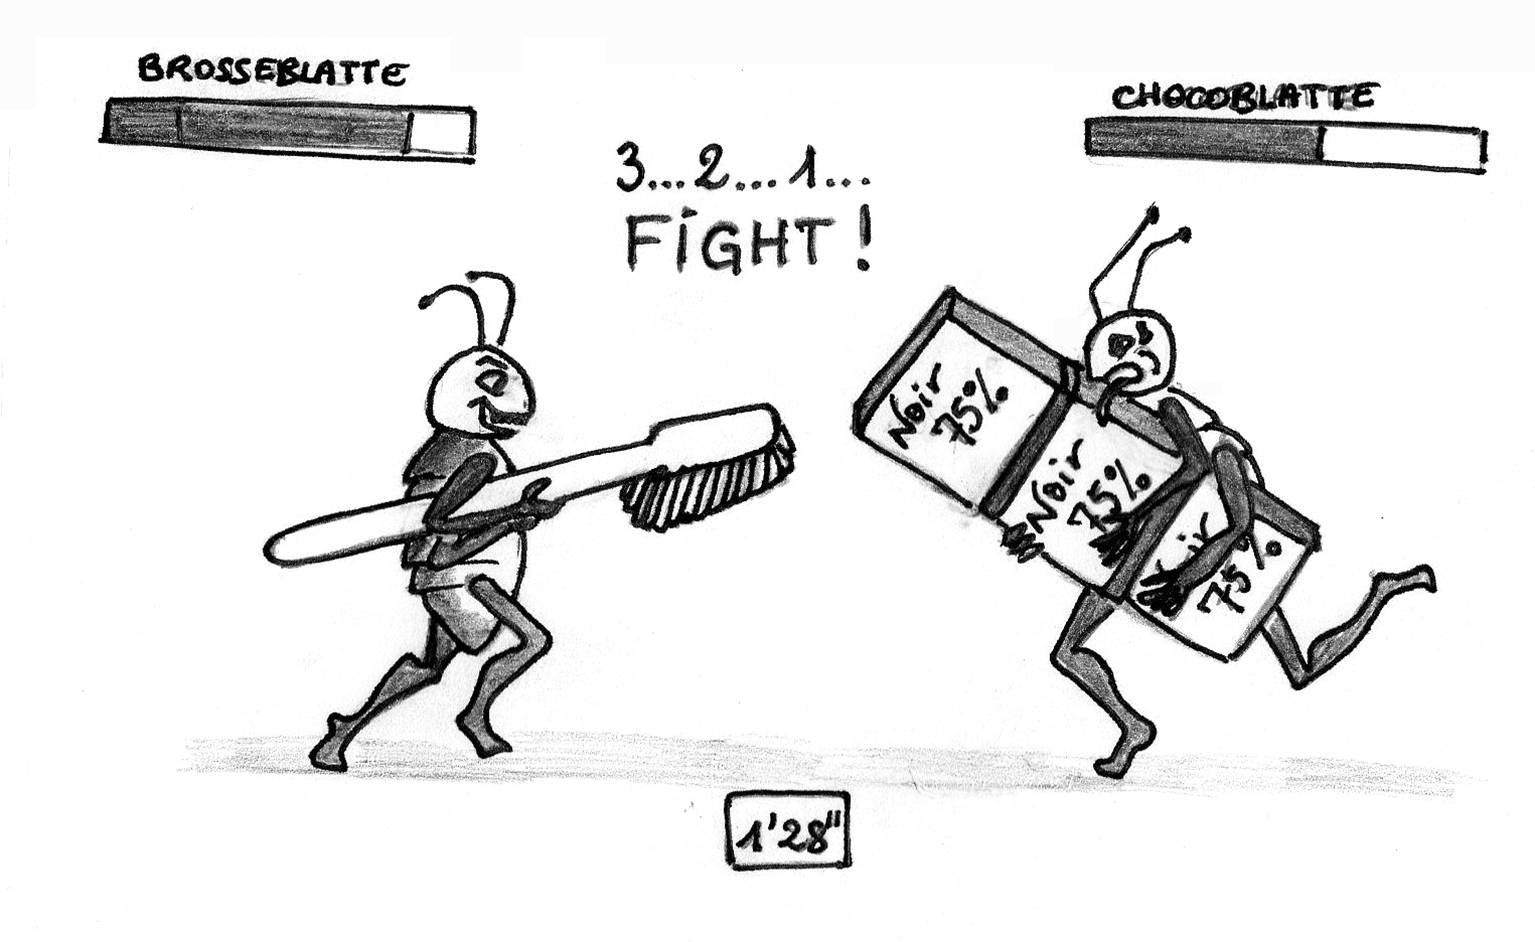 BROSSEBLATTE
CHOCOBLATTE
3...2...1...
FIGHT !
Noir
75%
Noir
75%
ir
75%
1'28"